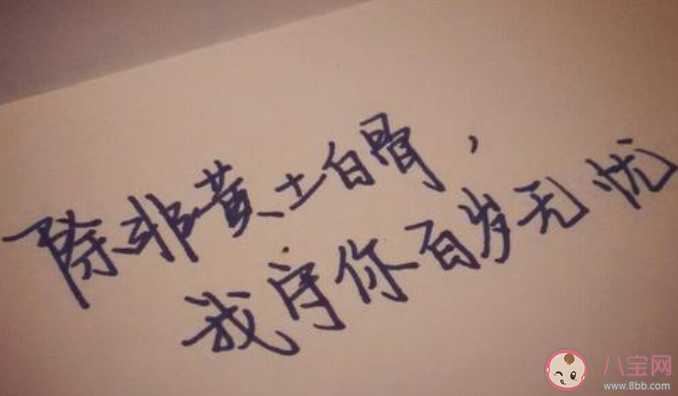 除非黄土白骨，
我守你百岁无忧
八宝网
www.8bb.com